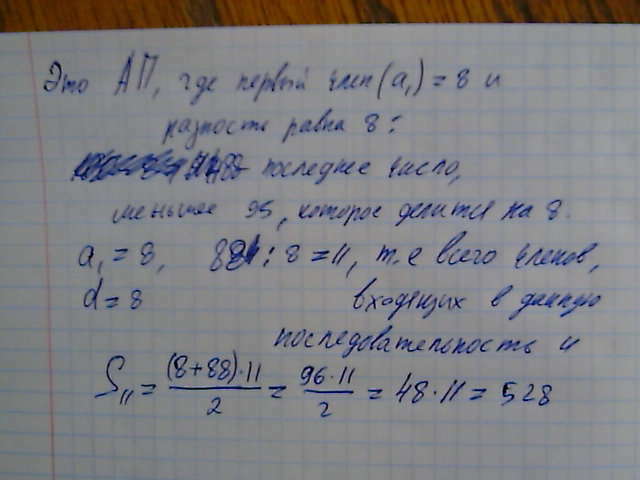 Это АП, где первый член (a₁) = 8 и
разность равна 8:
88 последнее число,
меньшее 95, которое делится на 8.
a₁ = 8, 88 : 8 = 11, т.е всего членов,
d = 8 входящих в данную
последовательность 11
S₁₁ = (8+88)·11 / 2 = 96·11 / 2 = 48·11 = 528